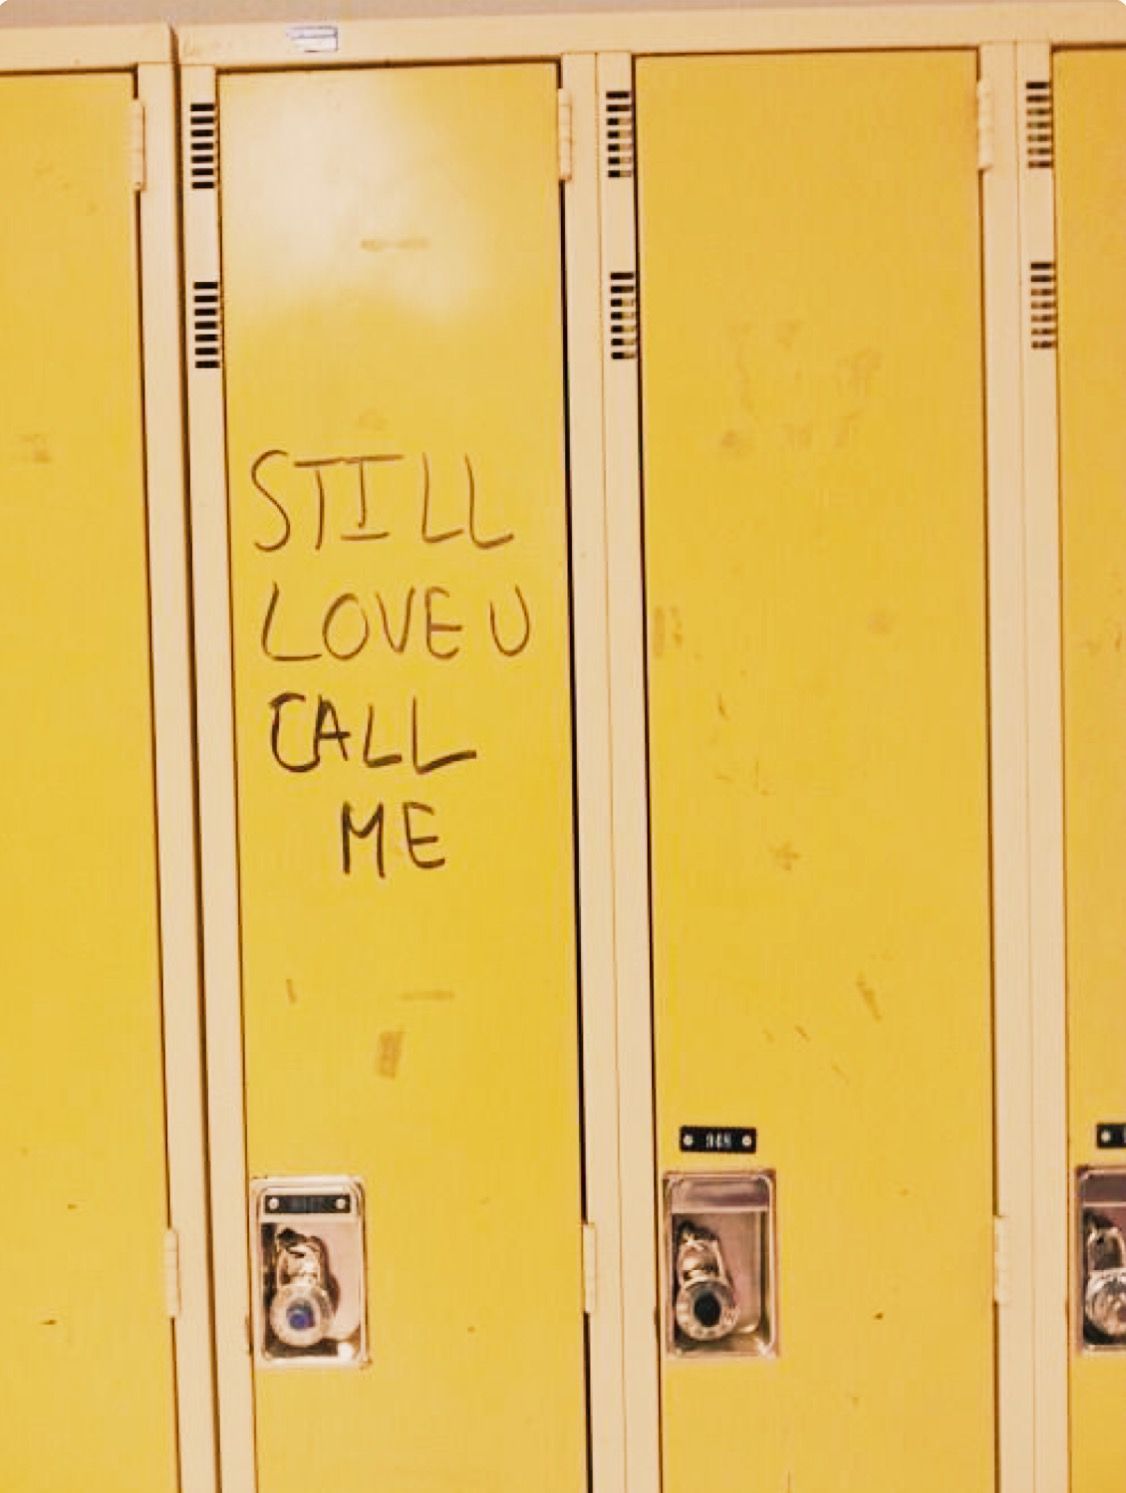 STILL
LOVE U
CALL
ME